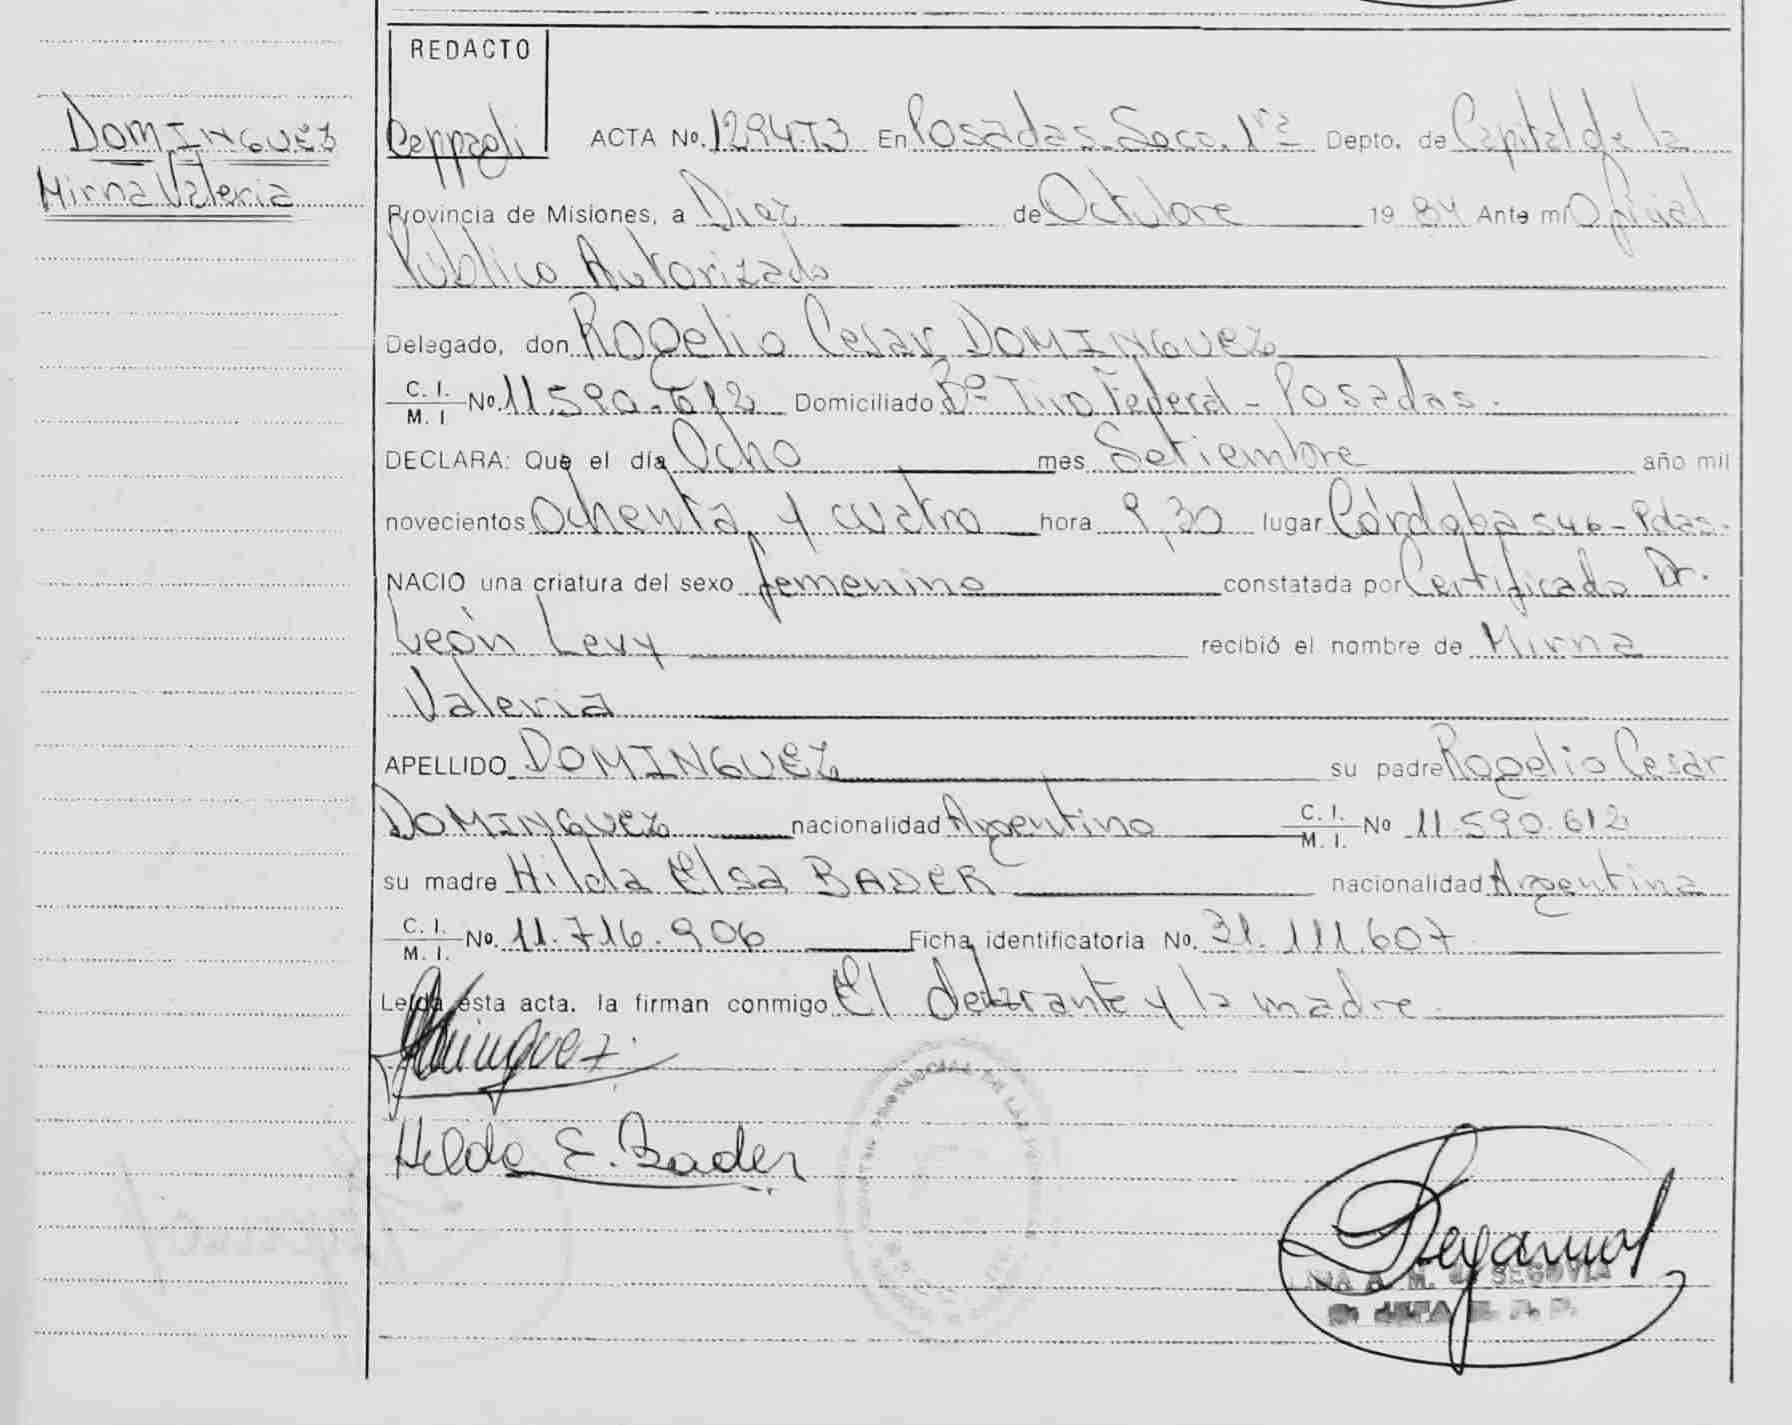 REDACTO
DOMINGUEZ
Mirna Valeria
ACTA No. 1294T3 En Posadas Secc. 1ra Depto. de Capital de la
Provincia de Misiones, a Diez de Octubre 19 84 Ante mi Oficial
Público Autorizado
Delegado, don Rogelio Cesar DOMINGUEZ
C. I.
M. I No. 11.590.612 Domiciliado Bº Tiro Federal - Posadas.
DECLARA: Que el día Ocho mes Setiembre año mil
novecientos Ochenta y cuatro hora 9,30 lugar Córdoba 546 - Pdas.
NACIO una criatura del sexo femenino constatada por Certificado Dr.
León Levy recibió el nombre de Mirna
Valeria
APELLIDO DOMINGUEZ su padre Rogelio Cesar
DOMINGUEZ nacionalidad Argentino C. I.
M. I. No 11.590.612
su madre Hilda Elsa BADER nacionalidad Argentina
C. I.
M. I. No. 11.716.906 Ficha identificatoria No. 31.111.607
Leida esta acta. la firman conmigo El y la madre.
Hilda E. Bader
A. M. de SEGOVIA